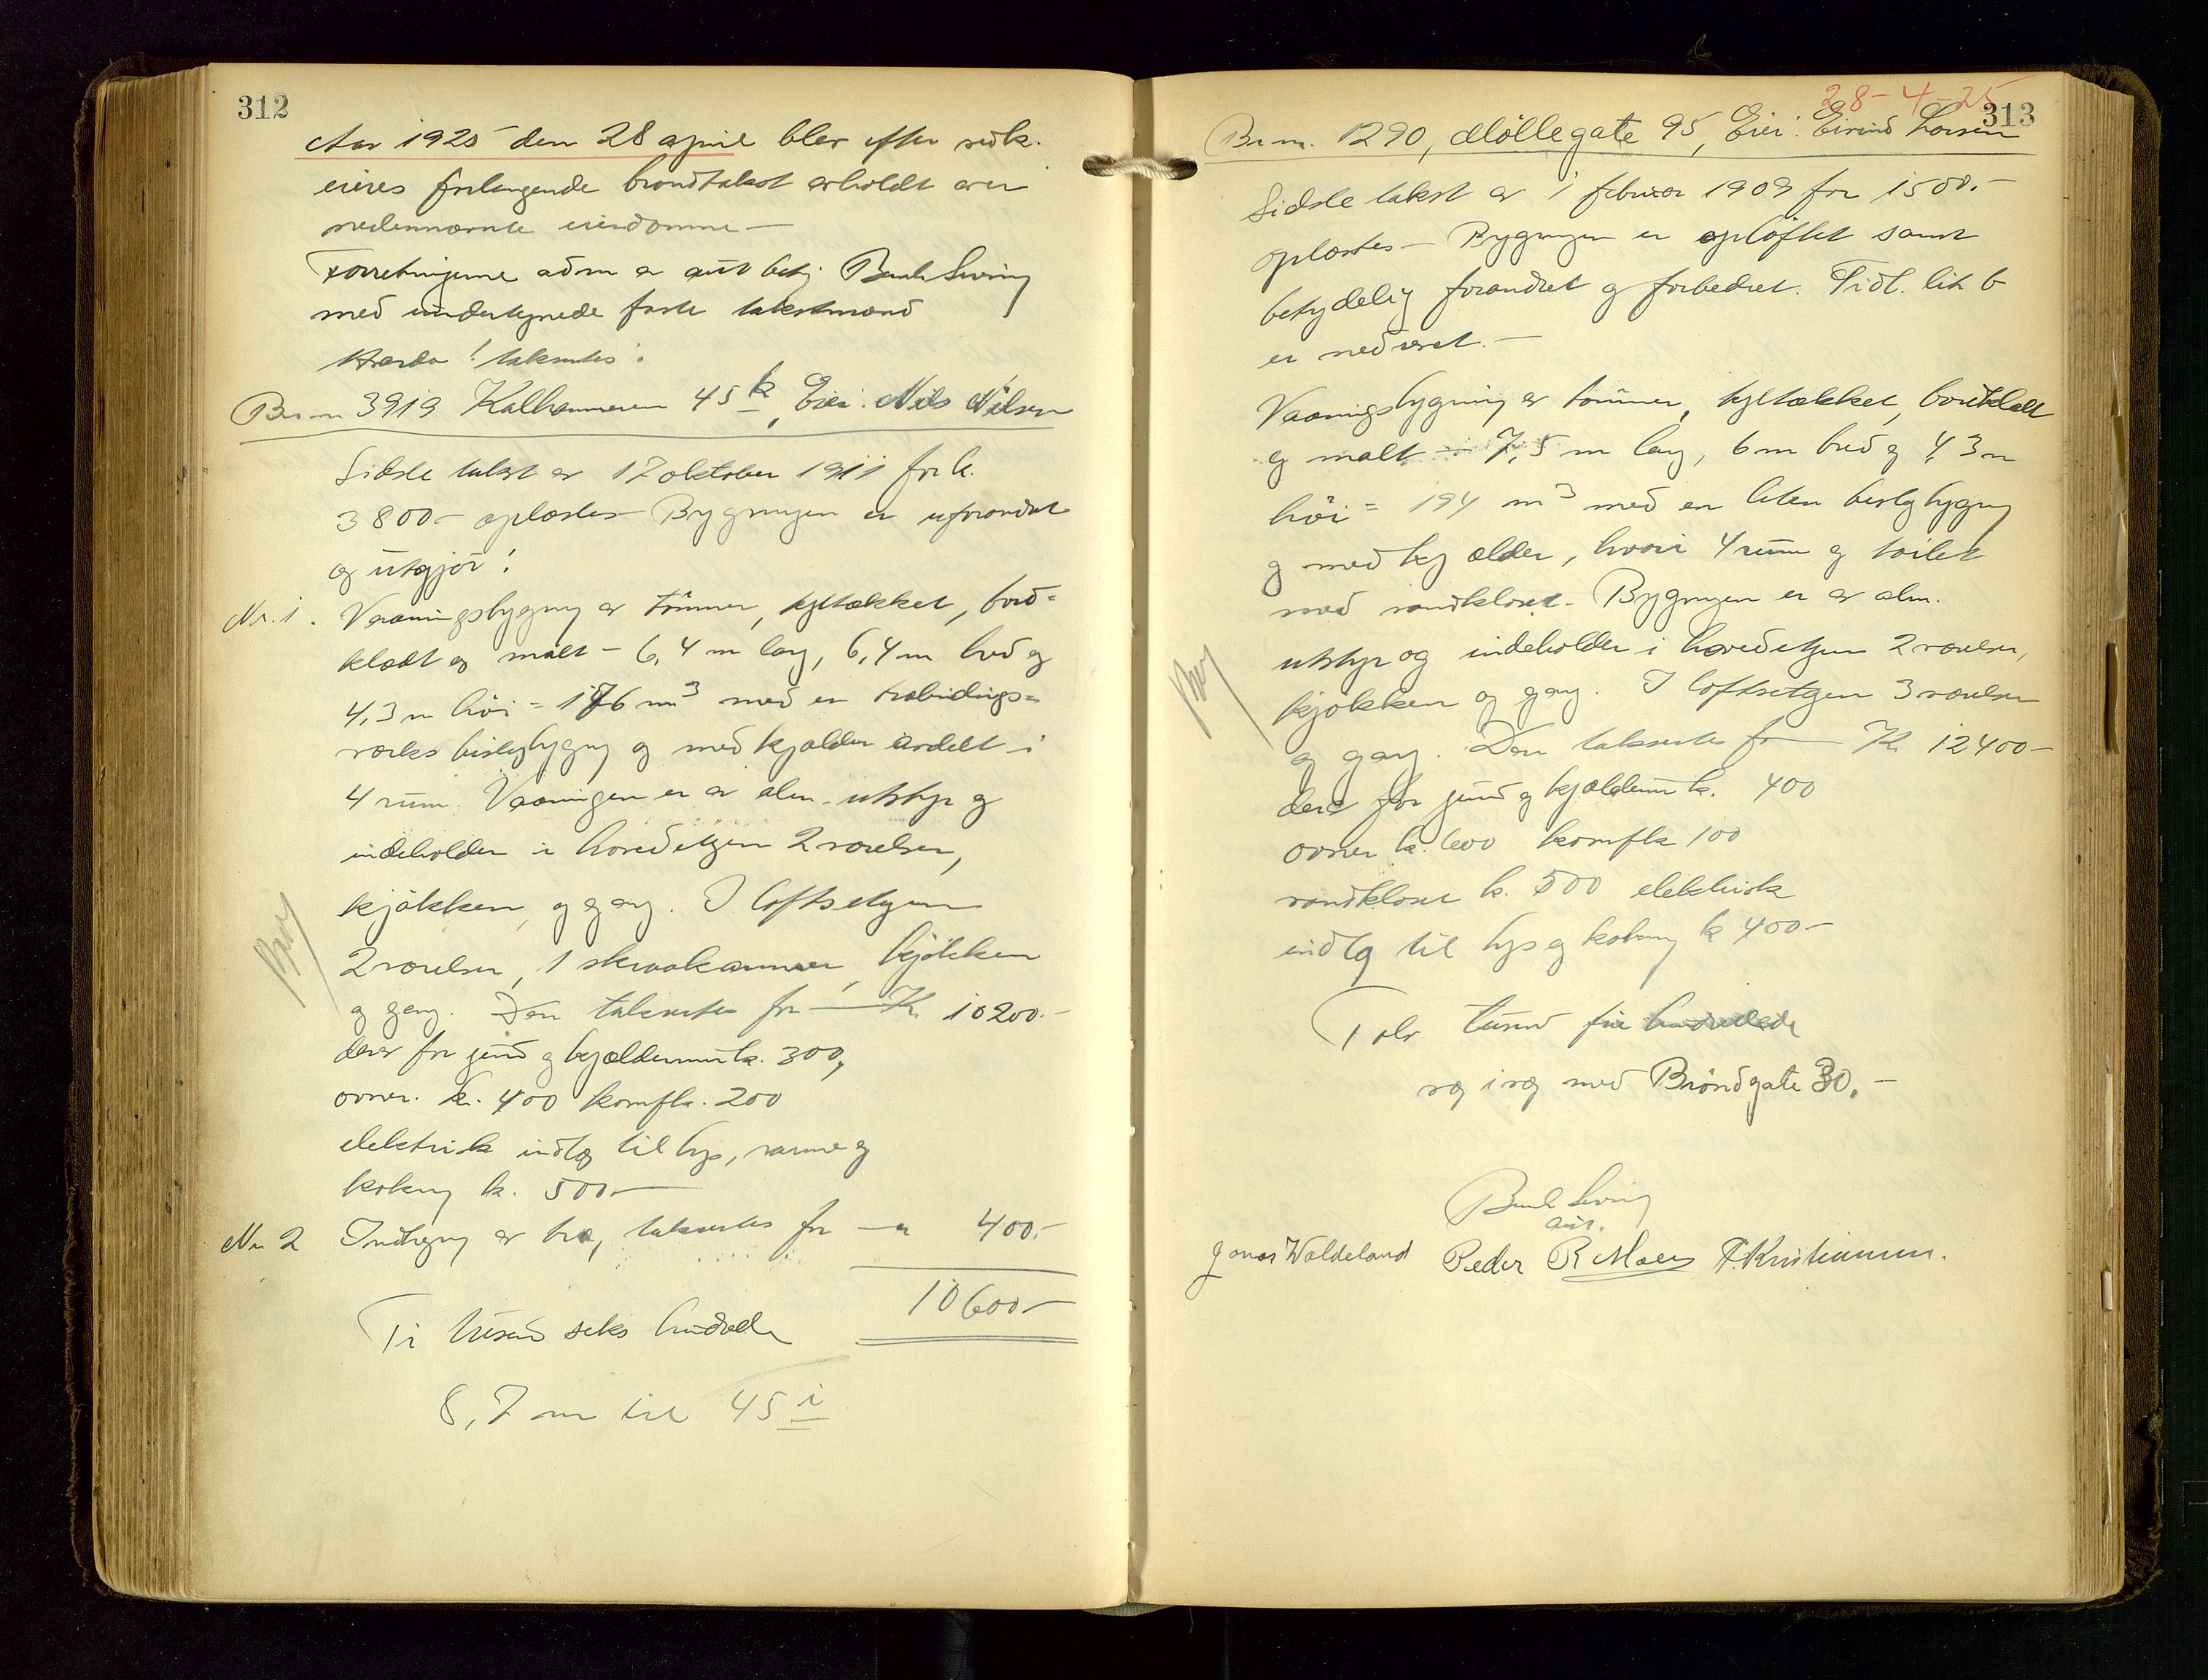 312
Aar 1925 den 28 april blev efter vedk.
eieres forlangende brandtakst avholdt over
nedennævnte eiendomme —
Forretningerne adm av aut bety Bernh Sivring
med undertegnede faste takstmænd
Hvorda! takseredes:
Br.nr 3919 Kalhammeren 45 k, Eier: Nils Nilsen
Sidste takst av 17 oktober 1911 for k.
3800– oplæstes – Bygningen er uforandret
og utgjør:
Nr. 1. Vaaningsbygning av tømmer, hjeltækket, bord-
klædt og malt – 6,4 m lang, 6,4 m bred og
4,3 m høi = 176 m3 med en trebindings-
verks bislagbygning og med kjælder avdelt i
4 rum. Vaaningen er av alm. utstyr og
indeholder i hovedetagen 2 værelser,
kjøkken og gang. I loftsetagen
2 værelser, 1 skraakammer, kjøkken
og gang. Den takseres for — Kr. 10200.–
derav for grund og kjældermur k. 300,
ovner. k. 400 komfkr. 200
elektrisk indlæg til lys, varme og
kokning k. 500 —
Nr. 2 Indhegning av træ, takseres for — " 400.–
10600–
Ti tusend seks hundrede
8,7 m til 45 i
28-4-25
313
Br.nr. 1290, Møllegate 95, Eier: Eivind Larsen
Sidste takst av 1 februar 1909 for 1500.–
oplæstes – Bygningen er opløftet samt
betydelig forandret og forbedret. Tidl. lit b
er nedrevet. —
Vaaningsbygning av tømmer, hjeltækket, bordklædt
og malt – 7,5 m lang, 6 m bred og 4,3 m
høi = 194 m3 med en liten bislagbygning
og med kjælder, hvori 4 rum og toilet
med vandkloset. Bygningen er av alm.
utstyr og indeholder i hovedetagen 2 værelser,
kjøkken og gang. I loftsetagen 3 værelser
og gang. Den takseres for — Kr. 12400–
derav for grund og kjældermur k. 400
ovner k. 600 komfkr 100
vandkloset k. 500 elektrisk
indlæg til lys og kokning k 400–
Tolv tusend fire hundrede
væg i væg med Brøndgate 30. –
Bernh Sivring
aut.
Jonas Waldeland Peder R Moen F. Kristiansen.